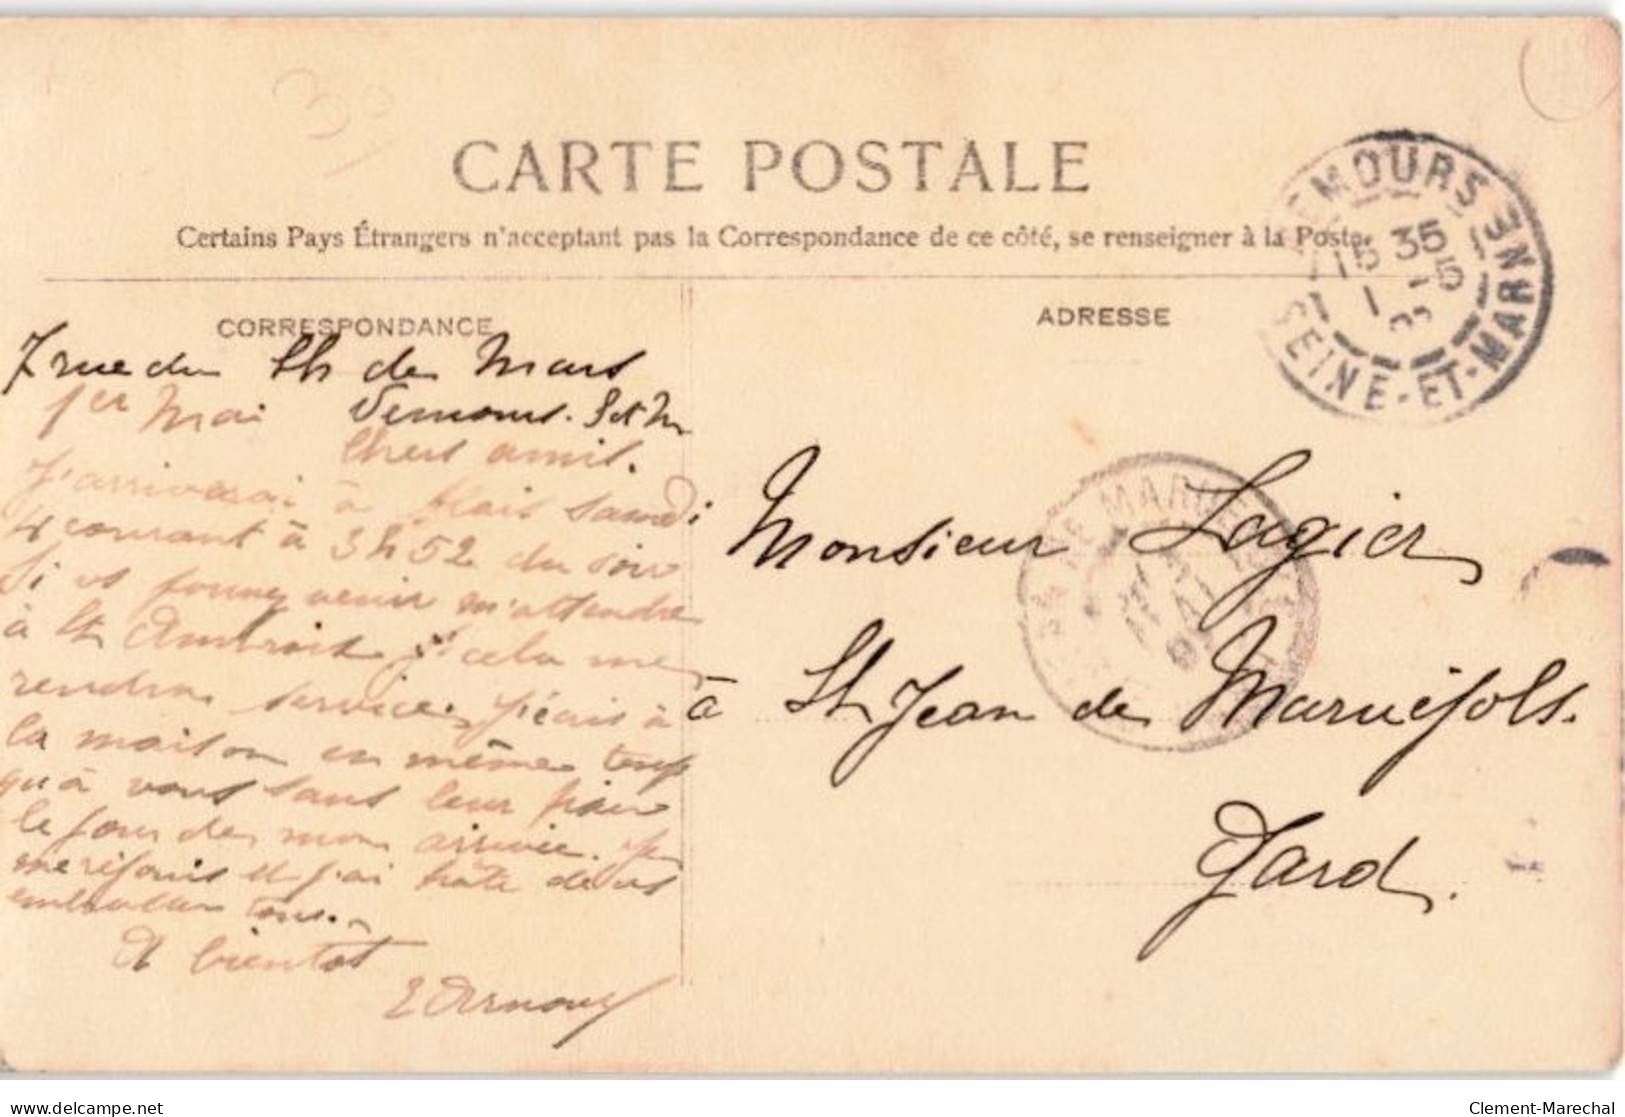 CARTE POSTALE
Certains Pays Étrangers n'acceptant pas la Correspondance de ce côté, se renseigner à la Poste.
CORRESPONDANCE
ADRESSE
EMOURS
SEINE-ET-MARNE
15 35
1 - 5
7 rue du Ch de Mars
1er Mai Nemours. S et M
Chers amis.
J'arriverai à Alais samedi
4 courant à 3h52 du soir
Si vs pouvez venir m'attendre
à St Ambroix cela me
rendra service. J'écris à
la maison en même temps
qu'à vous sans leur
le jour de mon arrivée. Je
me réjouis et j'ai hâte de vs
embrasser tous.
A bientôt
E Arnoux
Monsieur Lagier
à St Jean de Maruéjols.
Gard.
DE MARUE
delcampe.net
Clement-Marechal